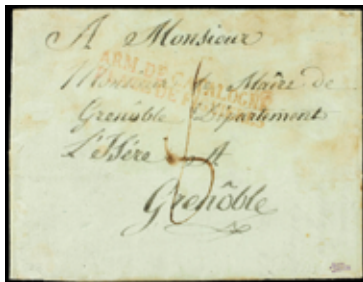 A Monsieur
ARM. DE CATALOGNE
Monsieur Le Maire de
Grenôble Département
L'Isére A
Grenôble
5